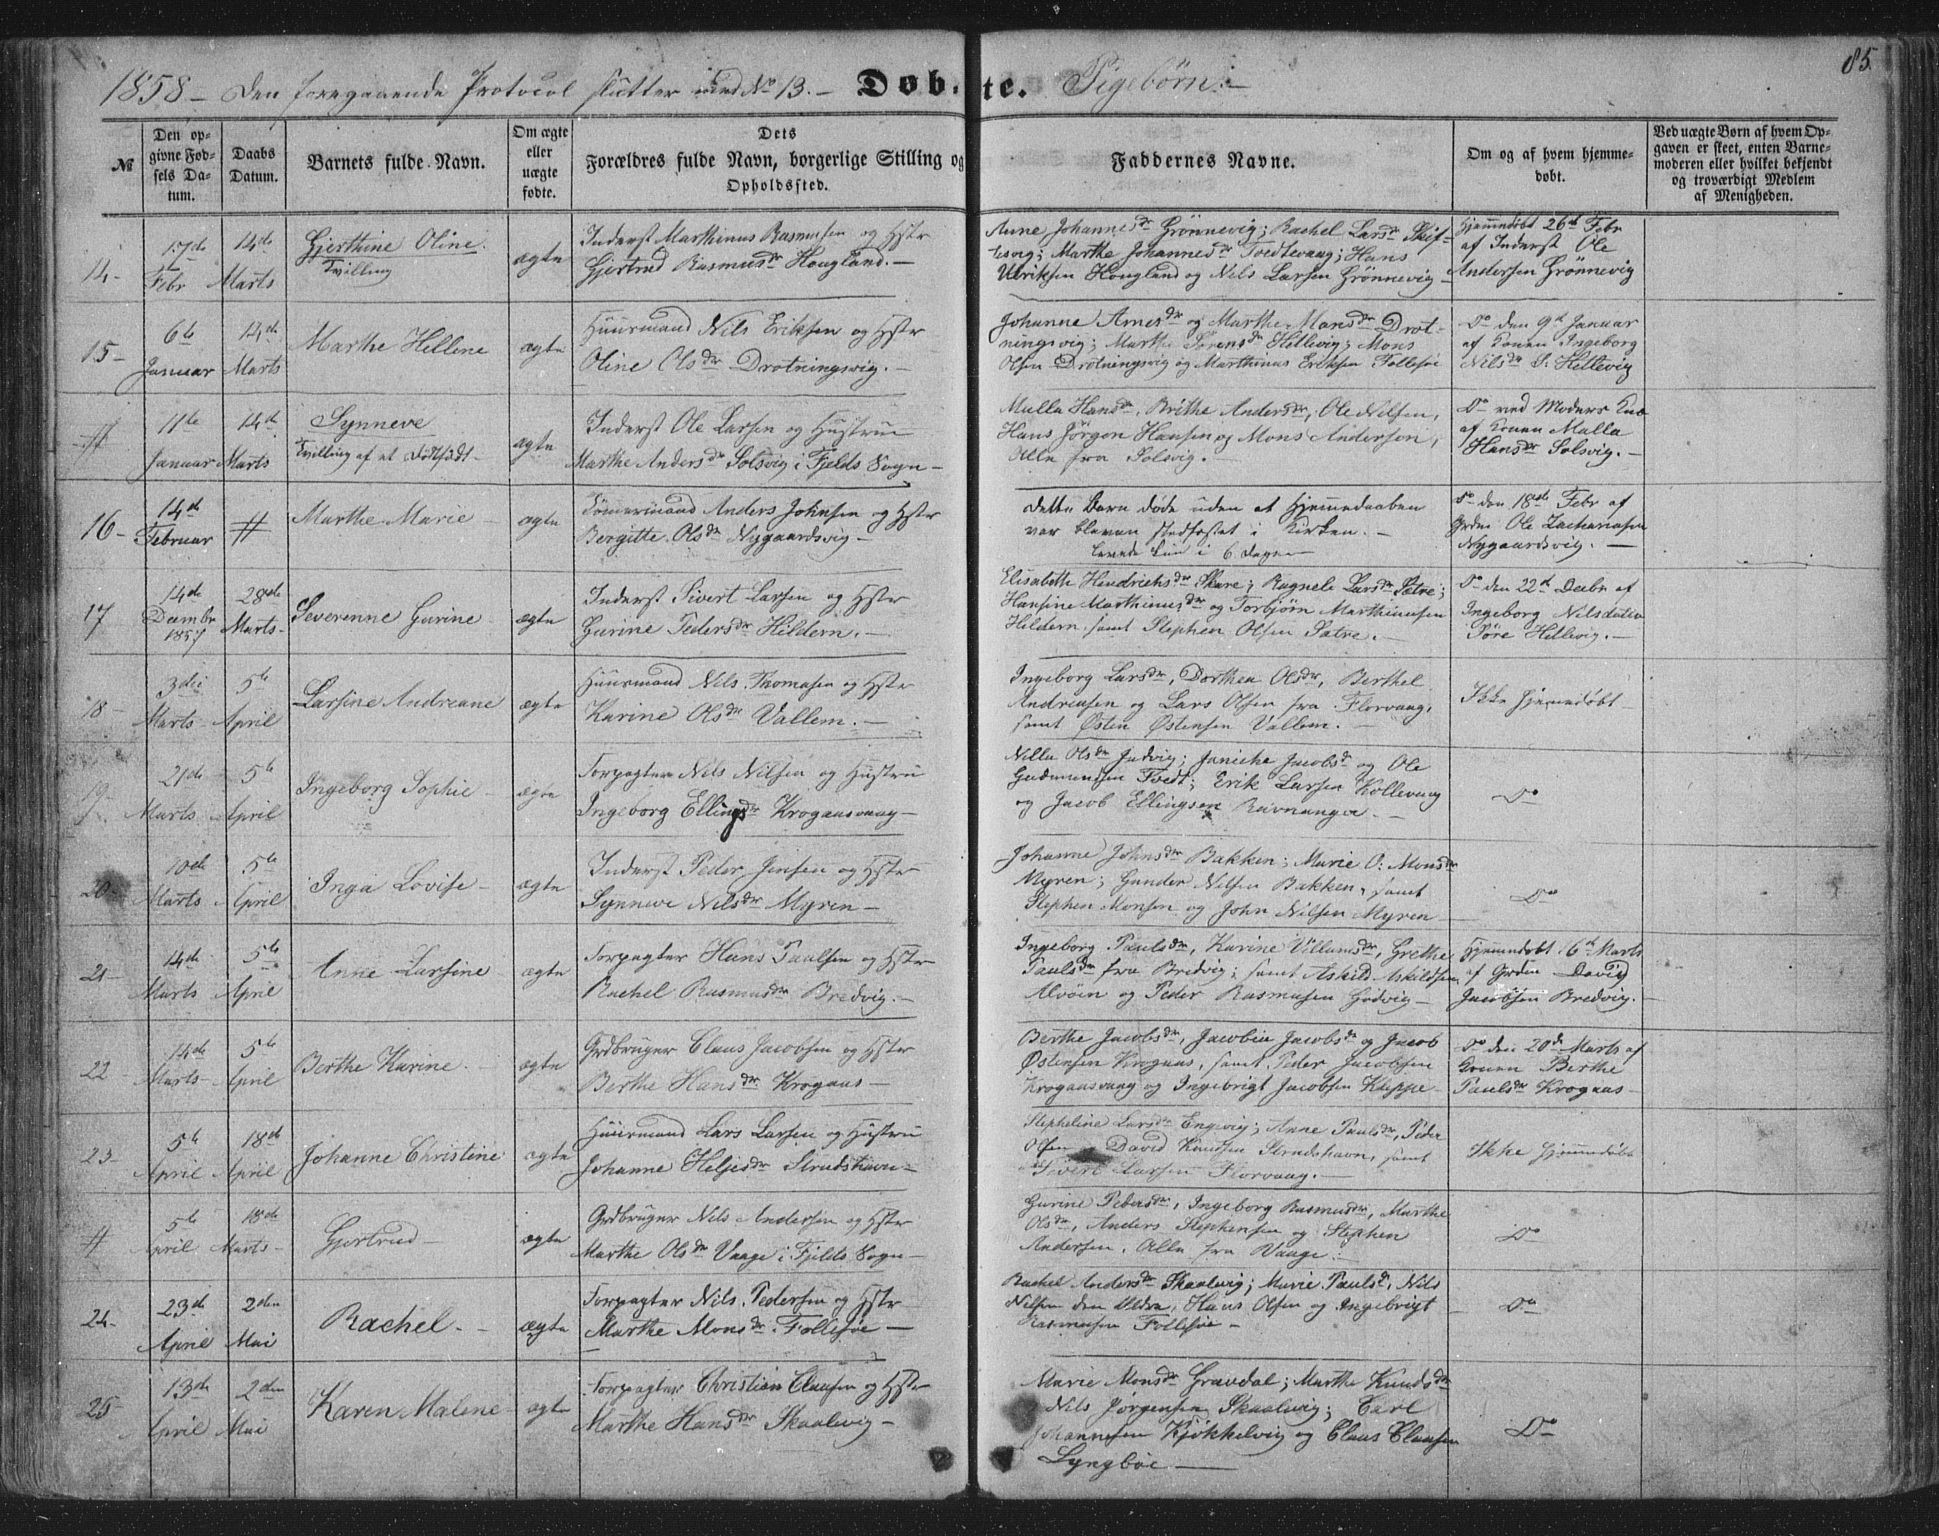 85.
1858 – Den foregaaende Protocol slutter med No 13. – Døbte. Pigebørn. –
No
Den opgivne Fødsels Datum.
Daabs Datum.
Barnets fulde Navn.
Om ægte eller uægte fødte.
Dets Forældres fulde Navn, borgerlige Stilling og Opholdssted.
Faddernes Navne.
Om og af hvem hjemmedøbt.
Ved uægte Børn af hvem Opgaven er skeet, enten Barnemoderen eller hvilket bekjendt og troværdigt Medlem af Menigheden.
14-
17de Febr
14de Marts
Gjerthine Oline.
Tvilling
ægte
Inderst Marthinus Rasmusen og Hstr
Gjertrud Rasmusdr Hougland. –
Anne Johannesdr Grønnevig; Rachel Larsdr Skif-
tesvig; Marthe Johannesdr Tvedtevaag; Hans
Ulriksen Hougland og Nils Larsen Grønnevig –
Hjemmedøbt 26de Febr
af Inderst Ole
Andersen Grønnevig
15-
6te Januar
14de Marts
Marthe Hellene
ægte
Huusmand Nils Eriksen og Hstr
Oline Olsdr Drotningsvig. –
Johanne Arnesdr og Marthe Monsdr Drot-
ningsvig; Marthe Sørensdr Hetlevig; Mons
Olsen Drotningsvig og Marthinus Eriksen Follesøe
Do den 9de Januar
af Konen Ingeborg
Nilsdr S. Hetlevig
#
11te Januar
14de Marts
Synneve
Tvilling af et
ægte
Inderst Ole Larsen og Hustrue
Marthe Andersdr Solsvig i Fjelds Sogn –
Malla Hansdr, Brithe Andersdr, Ole Nilsen,
Hans Jörgen Hansen og Mons Andersen,
Alle fra Solsvig. –
Do ved Moders
af Konen Malla
Hansdr Solsvig. –
16-
14de Februar
#
Marthe Marie –
ægte
Tømmermand Anders Johnsen og Hstr
Bergitte Olsdr Nygaardsvig –
Dette Barn døde uden at Hjemmedaaben
var bleven stadfæstet i Kirken. –
levede kun i 6 Dage
Do den 18de Febr af
Grdm Ole Zachariasen
Nygaardsvig. –
17
14de Decembr 1857
28de Marts –
Severenne Gurine –
ægte
Inderst Sivert Larsen og Hstr
Gurine Pedersdr Hildern. –
Elisabeth Hendrichsdr Skare; Ragnele Larsdr Sætre;
Hansine Marthinusdr og Torbjørn Marthinusen
Hildern samt Stephen Olsen Sætre. –
Do den 22de Decbr af
Ingeborg Nilsdatter
Søre Hetlevig. –
18-
3die Marts –
5te April
Larsine Andreane
ægte
Huusmand Nils Thomasen og Hstr
Karine Olsdr Vallem. –
Ingeborg Larsdr, Dorthea Olsdr, Berthel
Andreasen og Lars Olsen fra Florvaag,
samt Østen Østensen Vallem. –
Ikke hjemmedøbt –
19-
21de Marts
5te April
Ingeborg Sophie –
ægte
Forpagter Nils Nilsen og Hustru
Ingeborg Ellingsdr Krogaasvaag –
Nilla Olsdr Judvig; Janiche Jacobsdr og Ole
Gudmundsen Tvedt; Erik Larsen Kollevaag
og Jacob Ellingsen Ravnanger –
Do
20-
10de Marts
5te April
Inga Lovise –
ægte
Inderst Peder Jensen og Hstr
Synneve Nilsdr Myren –
Johanne Johnsdr Bakken; Marie O. Monsdr
Myren; Gunder Nilsen Bakken, samt
Stephen Monsen og John Nilsen Myren –
Do
21-
14de Marts
5te April
Anne Larsine
ægte
Forpagter Hans Paulsen og Hstr
Rachel Rasmusdr Bredvig. –
Ingeborg Paulsdr, Karine Villumsdr, Grethe
Paulsdr fra Bredvig; samt Askild Askildsen
Alvøen og Peder Rasmusen Godvig –
Hjemmedøbt 16de Marts
af Grdm David
Jacobsen Bredvig. –
22
14de Marts –
5te April
Berthe Karine.
ægte
Grdbruger Claus Jacobsen og Hstr
Berthe Hansdr Krogaas –
Berthe Jacobsdr, Jacobia Jacobsdr og Jacob
Østensen Krogaas, samt Peder Jacobsen
Krogaasvaag og Ingebrigt Jacobsen Kleppe –
Do den 20de Marts af
Konen Berthe
Paulsdr Krogaas –
23-
5te April
18de April
Johanne Christine
ægte
Huusmand Lars Larsen og Hustru
Johanne Heljesdr Strudshavn –
Stepheline Larsdr Engevig; Anne Paulsdr, Peder
Olsen David Knudsen Strudshavn, samt
Sivert Larsen Florvaag. –
Ikke hjemmedøbt
#
5te April
18de Marts –
Gjertrud –
ægte
Grdbruger Nils Andersen og Hstr
Marthe Olsdr Vaage i Fjelds Sogn –
Gurine Pedersdr, Ingeborg Rasmusdr, Marthe
Olsdr, Anders Stephensen og Stephen
Andersen, Alle fra Vaage.
Do
24-
23de April
2den Mai
Rachel. –
ægte
Forpagter Nils Pedersen og Hstr
Marthe Monsdr Follesøe –
Rachel Andersdr Skaalevig; Marie Paulsdr, Nils
Nilsen den Ældre, Hans Olsen og Ingebrigt
Rasmusen Follesøe –
Do
25-
13de April
2den Mai
Karen Malene –
ægte
Forpagter Christian Clausen og Hstr
Marthe Hansdr Skaalevig –
Marie Monsdr Gravdal; Marthe Knudsdr
Nils Jørgensen Skaalevig; Carl
Johannesen Kjøkkelvig og Claus Clausen
Lyngbøe –
Do